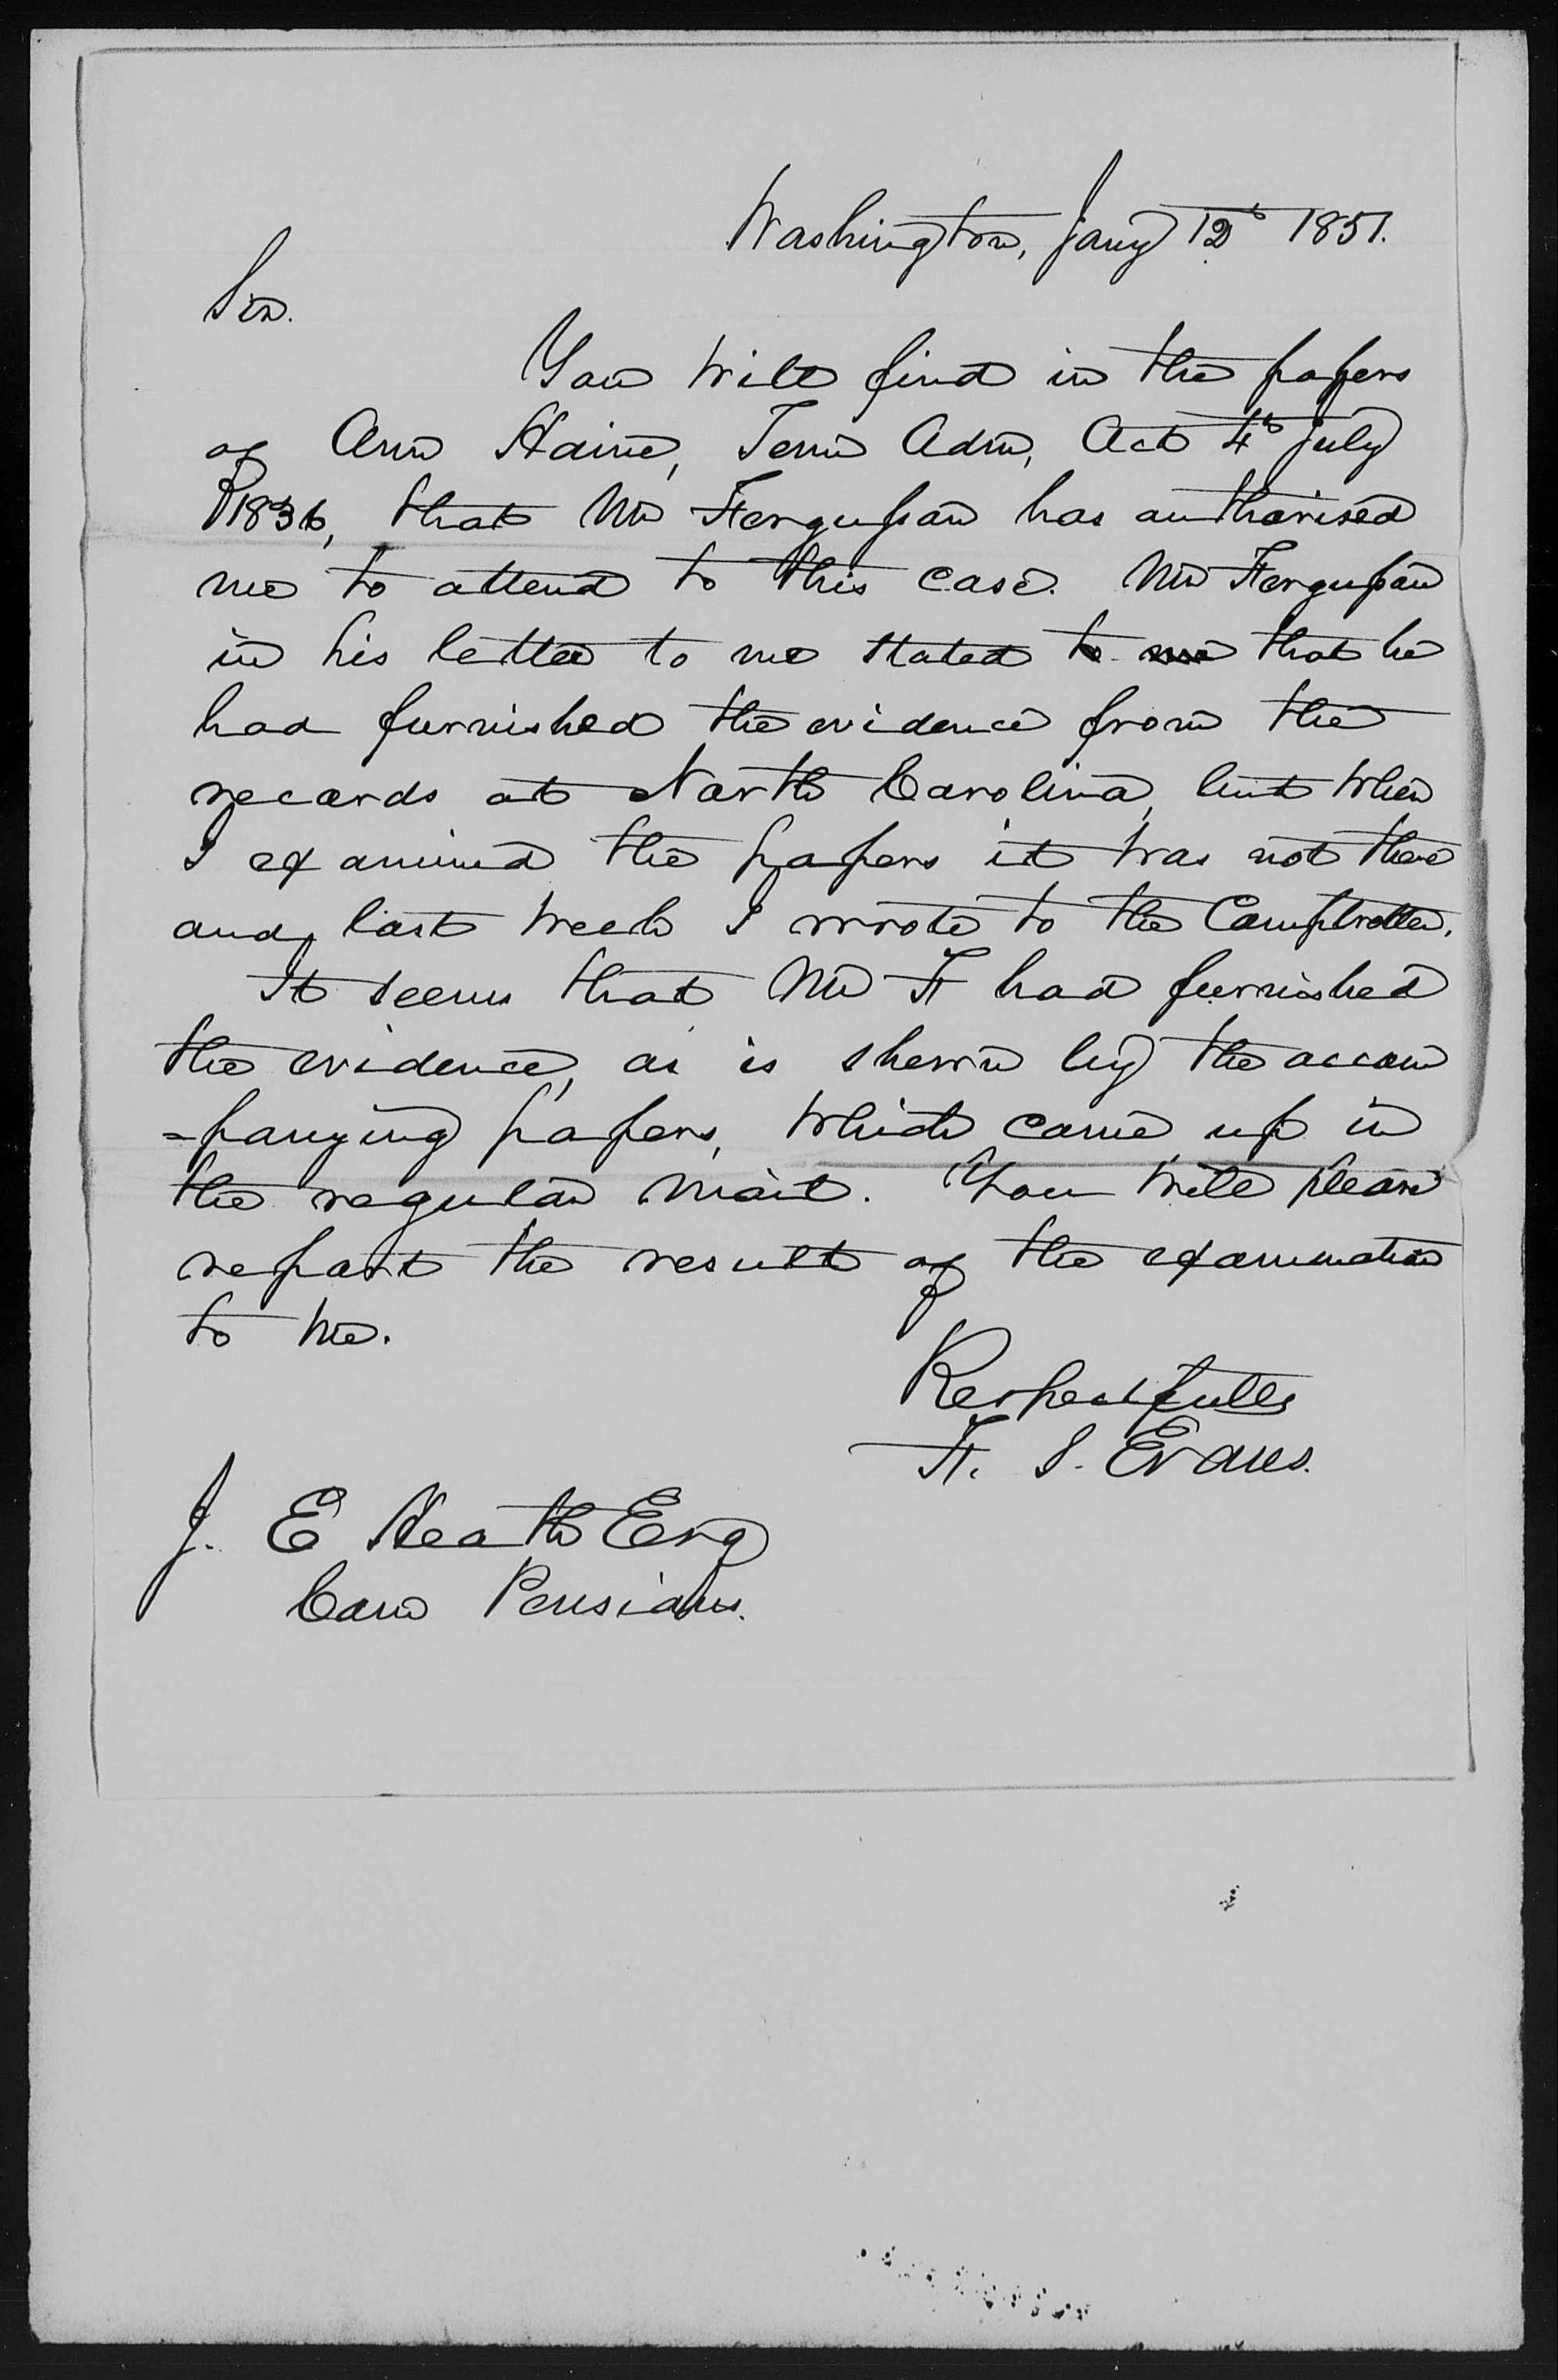 Washington, Jany 12th 1851.
Sir.
You will find in the papers
of Ann Haine, Tenn Adm, Act 4th July
1836, that Mr Ferguson has authorised
me to attend to this case. Mr Ferguson
in his letter to me stated to me that he
had furnished the evidence from the
records at North Carolina, but when
I examined the papers it was not there
and last week I wrote to the Comptroller.
It seems that Mr F had furnished
the evidence, as is shewn by the accom
=panying papers, which came up in
the regular mail. You will please
report the result of the examination
to me.
Respectfully
F. S. Evans.
J. E Heath Esq
Com Pensions.